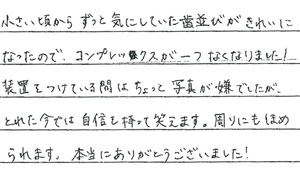 小さい頃からずっと気にしていた歯並びがきれいに
なったので、コンプレックスが一つなくなりました!
装置をつけている間はちょっと写真が嫌でしたが、
とれた今では自信を持って笑えます。周りにもほめ
られます。本当にありがとうございました!